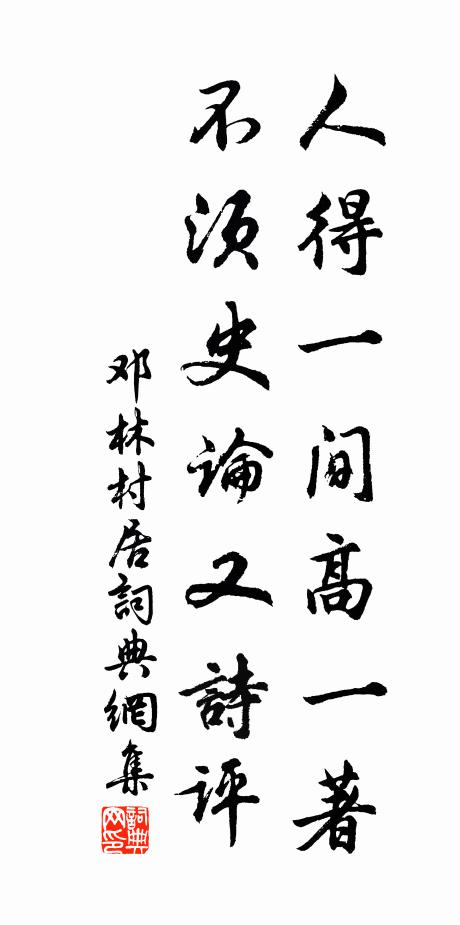 人得一间高一著
不须史論又詩評
邓林村居詞典網集
詞典
网印